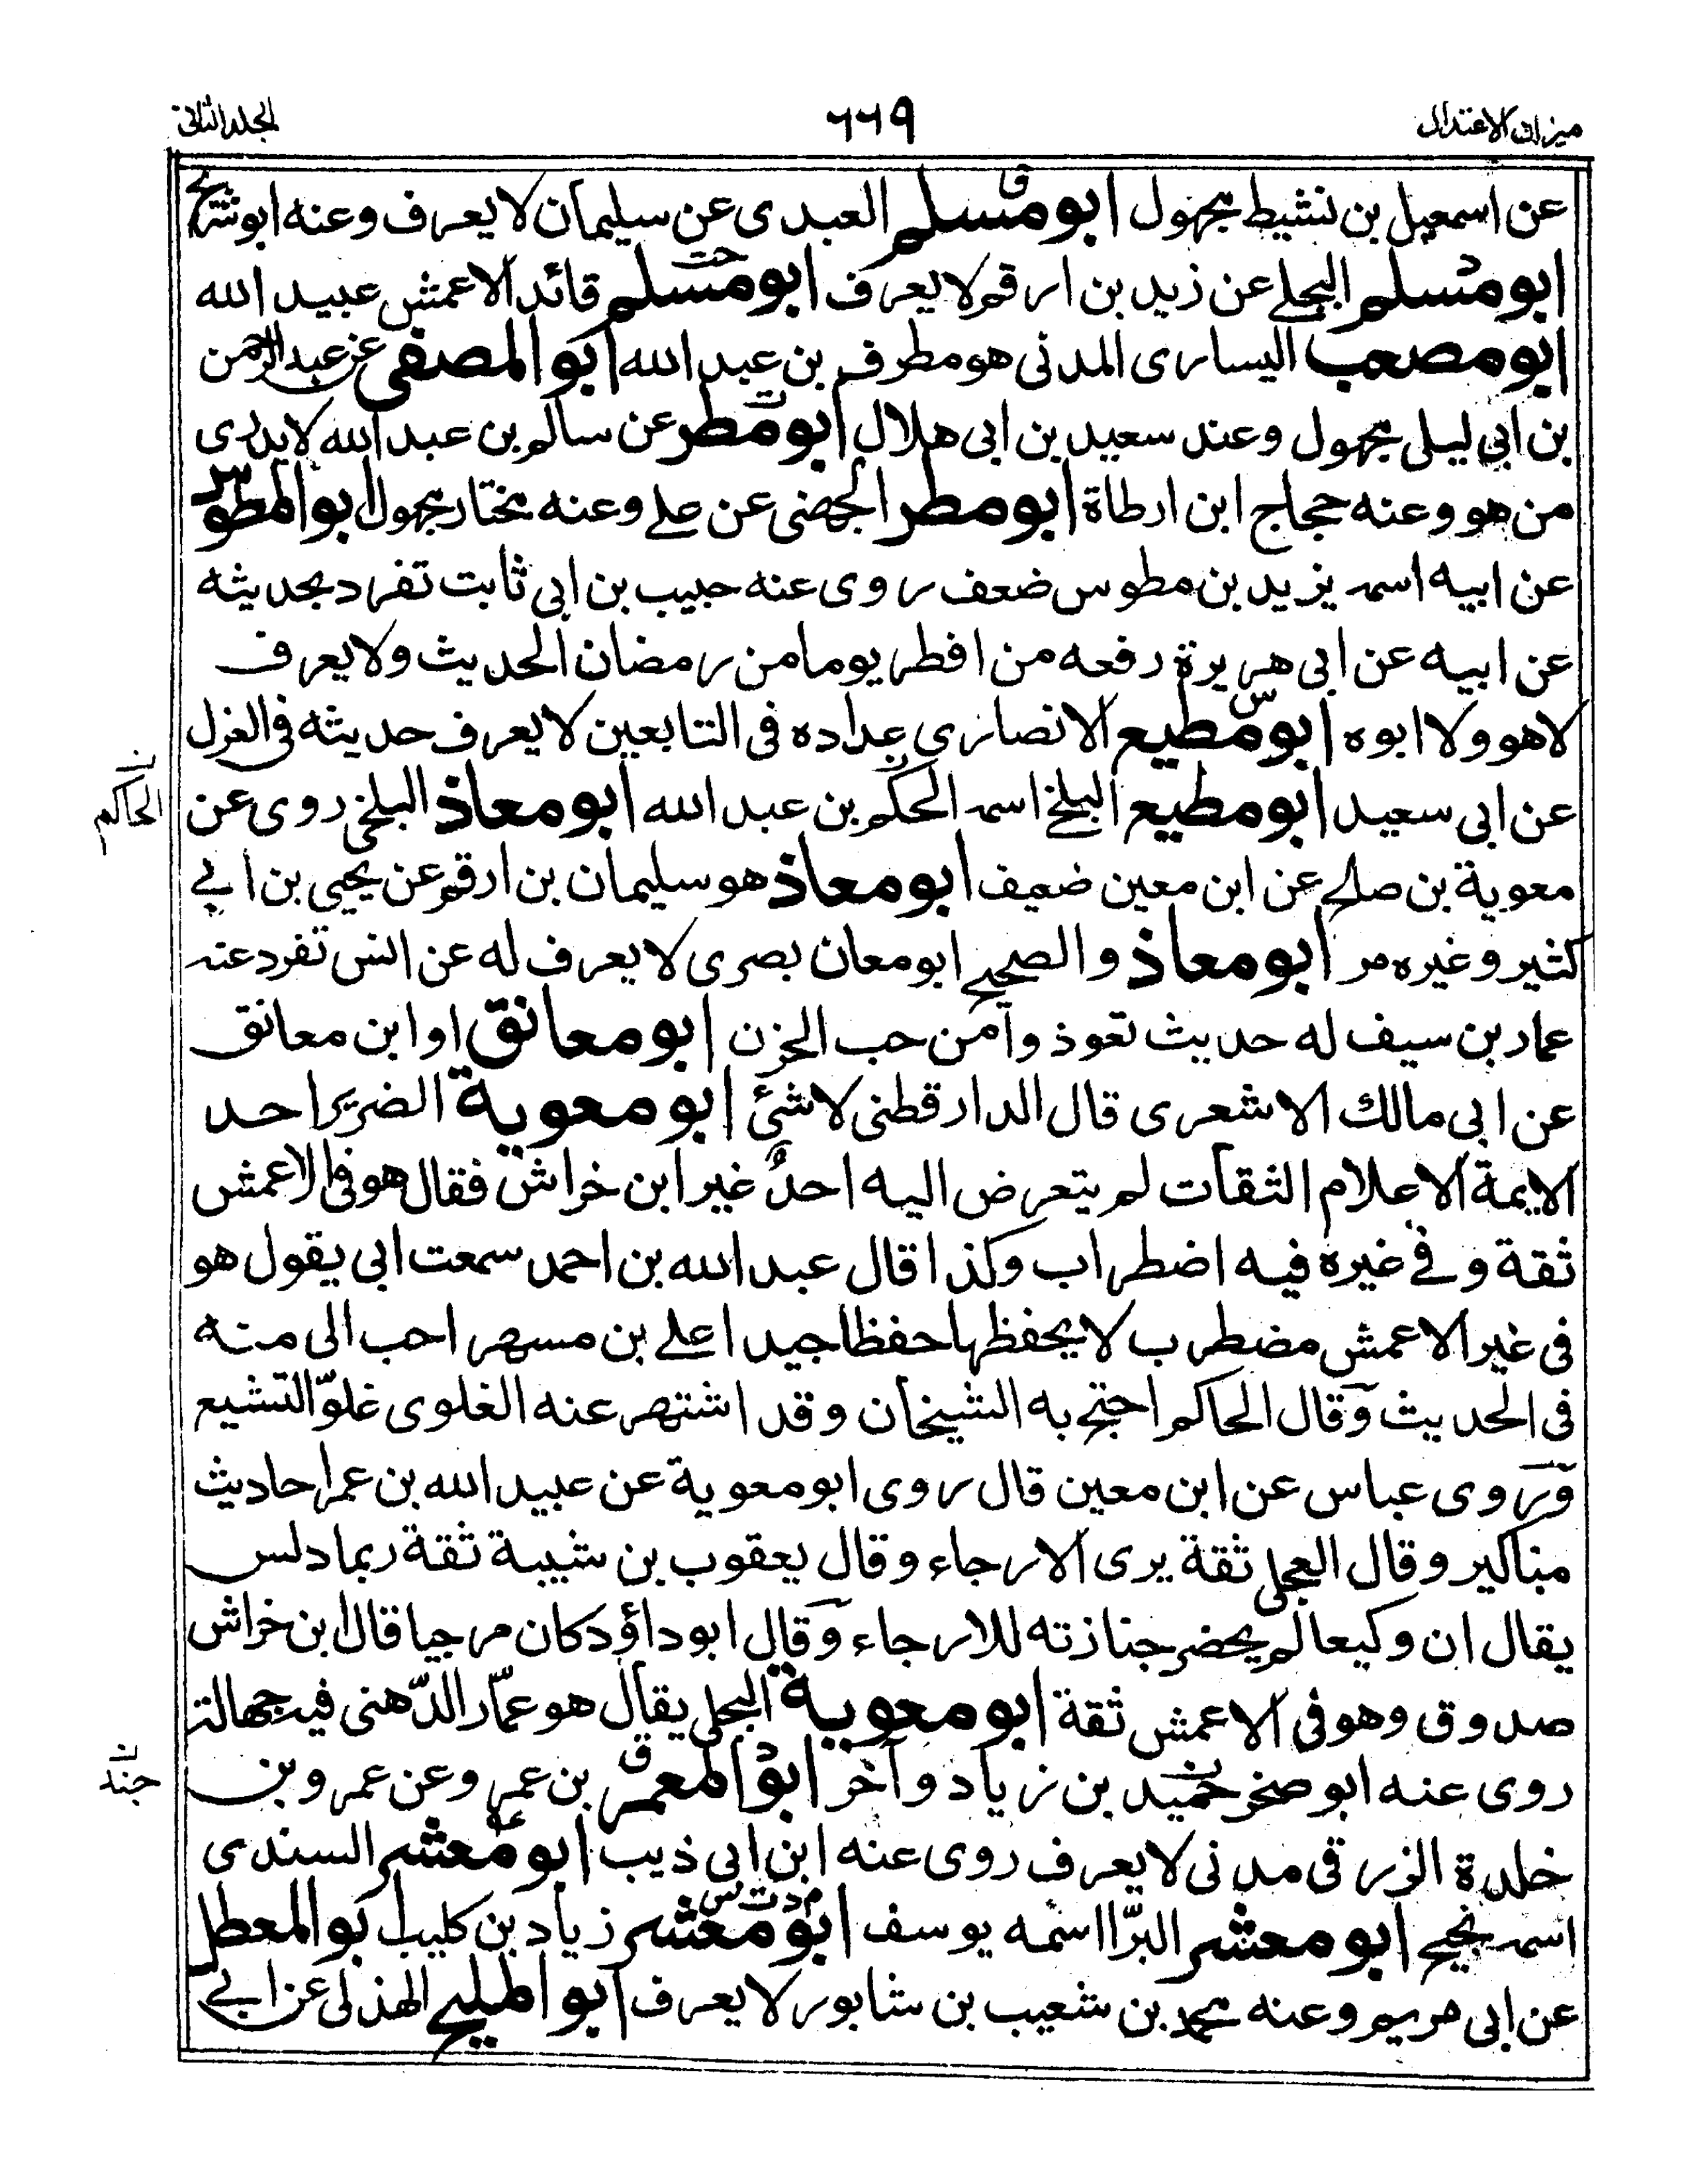 ميزان الاعتدال
٦٦٩
المجلد الثاني
عن اسمعيل بن نشيط مجهول ابو مسلم العبدى عن سليمان لا يعرف وعنه ابو شريح
ق
ابو مسلم البجلے عن زيد بن ارقم لا يعرف ابو مسلم قائد الاعمش عبيد الله
د خت
ابو مصعب اليسارى المدنى هو مطرف بن عبد الله ابو المصفى عن عبد الرحمن
بن ابي ليلى مجهول وعند سعيد بن ابى هلال ابو مطر عن سالم بن عبد الله لا يدرى
ت
من هو وعنه حجاج ابن ارطاة ابو مطر الجهنى عن علے وعنه مختار مجهول ابو المطوس
عن ابيه اسمه يزيد بن مطوس ضعف روى عنه حبيب بن ابى ثابت تفرد بحديثه
عن ابيه عن ابى هريرة رفعه من افطر يوما من رمضان الحديث ولا يعرف
لا هو ولا ابوه ابو مطيع الانصارى عداده فى التابعين لا يعرف حديثه فى العزل
س
عن ابى سعيد ابو مطيع البلخے اسمه الحكم بن عبد الله ابو معاذ البلخى روى عن
ن
الحاكم
معوية بن صالح عن ابن معين ضعيف ابو معاذ هو سليمان بن ارقم عن يحيى بن ابے
كثير وغيره مر ابو معاذ والصحيح ابو معان بصرى لا يعرف له عن انس تفرد عنه
عمار بن سيف له حديث تعوذ وا من حب الحزن ابو معانق او ابن معانق
عن ابى مالك الاشعرى قال الدارقطنى لا شئ ابو معوية الضرير احد
الايمة الاعلام الثقات لم يتعرض اليه احدٌ غير ابن خراش فقال هو فى الاعمش
ثقة وفے غيره فيه اضطراب وكذا قال عبد الله بن احمد سمعت ابى يقول هو
فى غير الاعمش مضطرب لا يحفظها حفظا جيدا علے بن مسهر احب الى منه
فى الحديث وقال الحاكم احتج به الشيخان وقد اشتهر عنه الغلوى غلوّ التشيع
وروى عباس عن ابن معين قال روى ابو معوية عن عبيد الله بن عمر احاديث
مناكير وقال العجلى ثقة يرى الارجاء وقال يعقوب بن شيبة ثقة ربما دلس
يقال ان وكيعا لم يحضر جنازته للارجاء وقال ابو داؤد كان مرجيا قال ابن خراش
صدوق وهو فى الاعمش ثقة ابو معوية البجلى يقال هو عمّار الدّهنى فيه جهالة
روى عنه ابو صخر حميد بن زياد وآخر ابو المعمر بن عمر وعن عمر وبن
د ق
ن
خلدة الزرقى مدنى لا يعرف روى عنه ابن ابى ذيب ابو معشر السندى
عه
اسمه نجيح ابو معشر البرّا اسمه يوسف ابو معشر زياد بن كليب ابو المعطل
م د ت س
عن ابى مريم وعنه محمد بن شعيب بن شابور لا يعرف ابو المليح الهذلى عن ابے